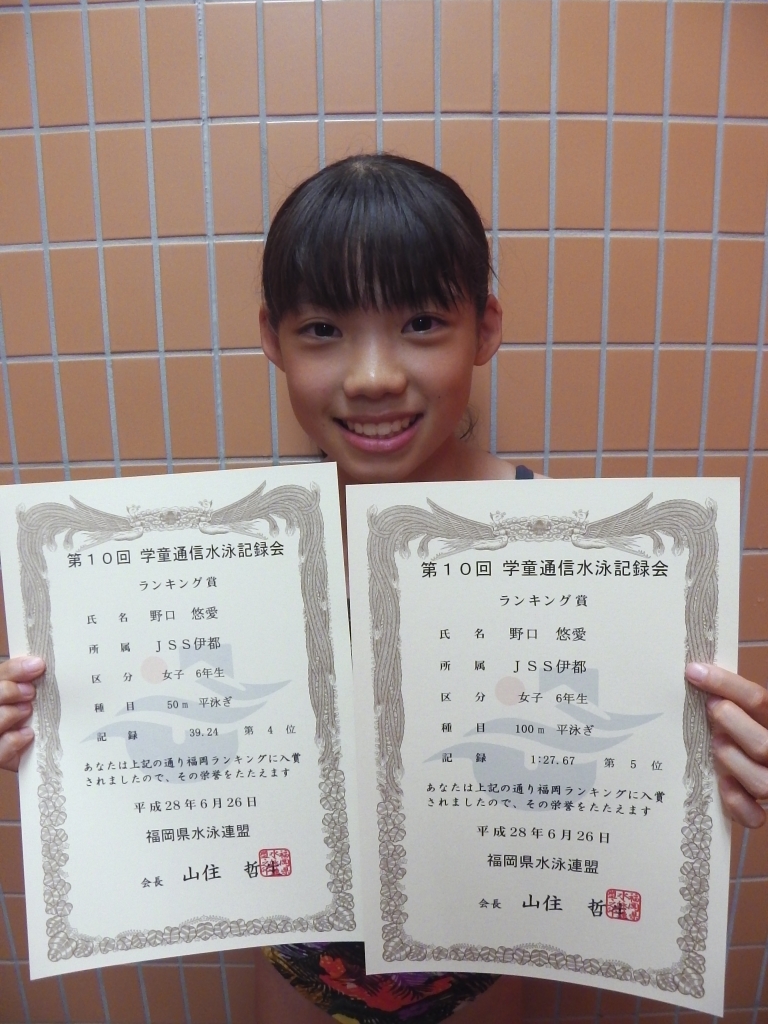 第10回 学童通信水泳記録会
ランキング賞
氏 名 野口 悠愛
所 属 JSS伊都
区 分 女子 6年生
種 目 50m 平泳ぎ
記 録 39.24 第 4 位
あなたは上記の通り福岡ランキングに入賞
されましたので、その栄誉をたたえます
平成28年6月26日
福岡県水泳連盟
会長 山住 哲生
第10回 学童通信水泳記録会
ランキング賞
氏 名 野口 悠愛
所 属 JSS伊都
区 分 女子 6年生
種 目 100m 平泳ぎ
記 録 1:27.67 第 5 位
あなたは上記の通り福岡ランキングに入賞
されましたので、その栄誉をたたえます
平成28年6月26日
福岡県水泳連盟
会長 山住 哲生